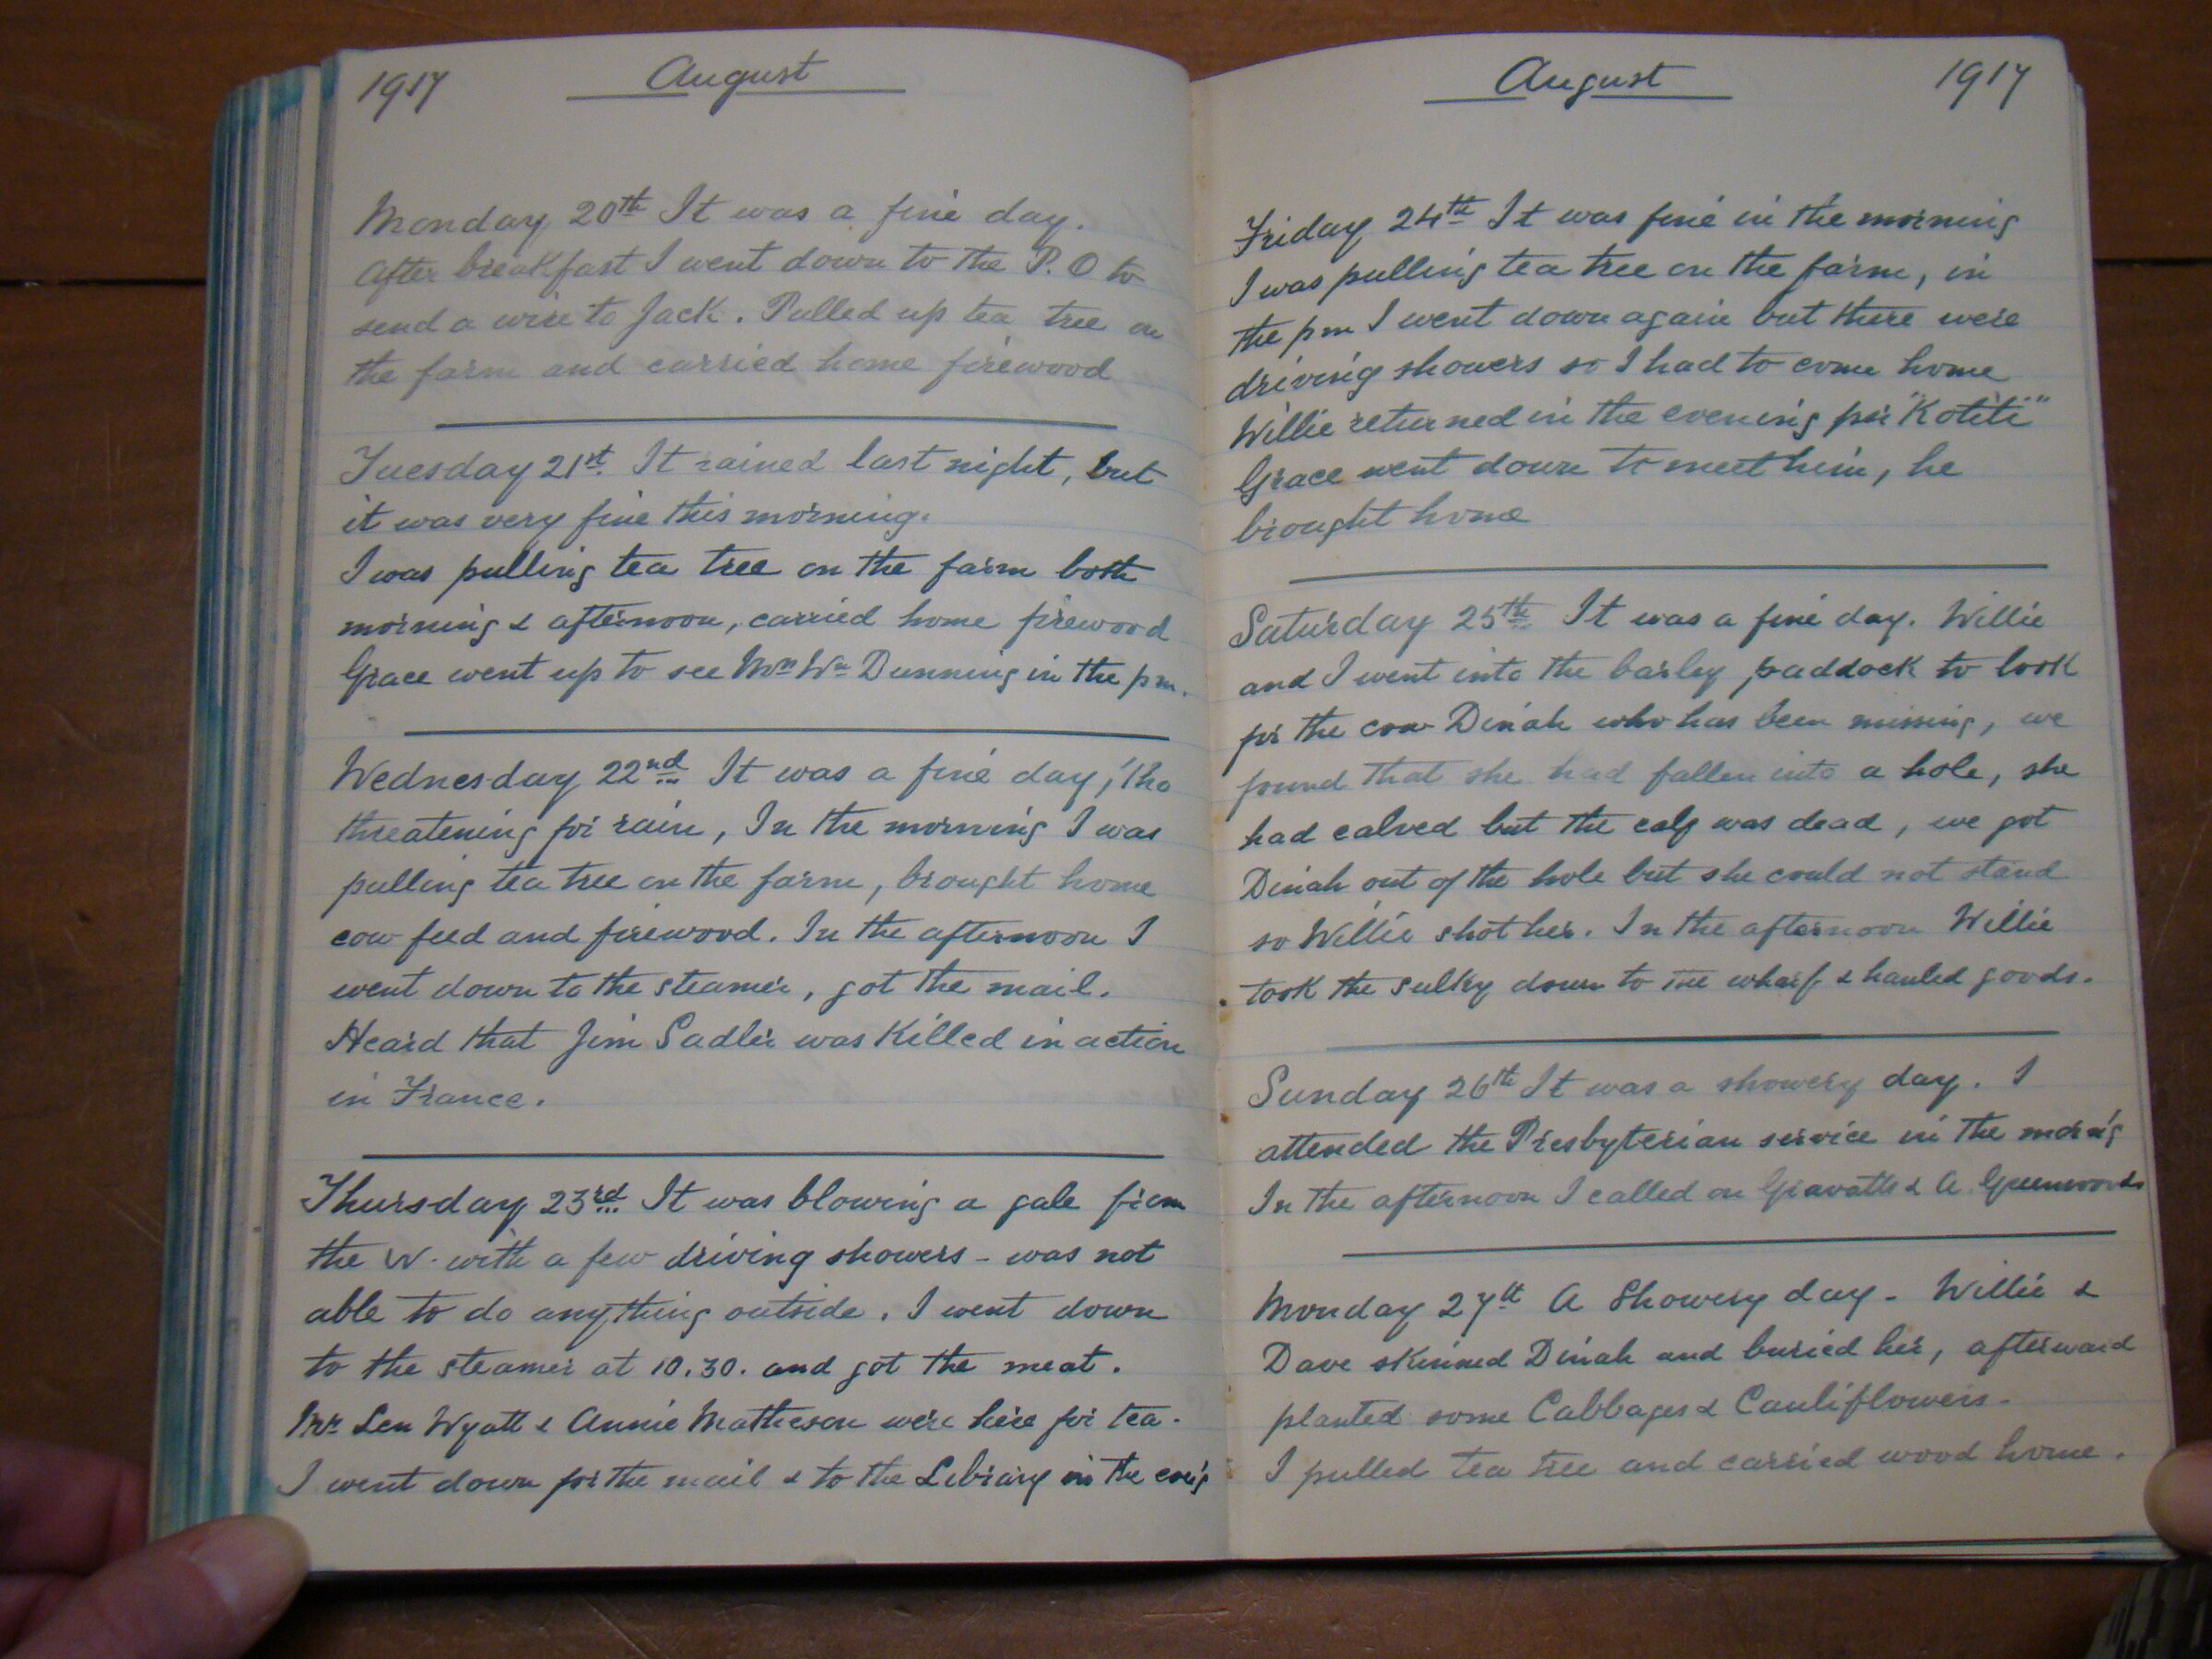 1917 August
Monday 20th It was a fine day.
After breakfast I went down to the P.O to
send a wire to Jack. Pulled up tea tree on
the farm and carried home firewood
Tuesday 21st. It rained last night, but
it was very fine this morning.
I was pulling tea tree on the farm both
morning & afternoon, carried home firewood
Grace went up to see Mrs Wm Dunning in the pm.
Wednesday 22nd It was a fine day, 'tho
threatening for rain, In the morning I was
pulling tea tree on the farm, brought home
cow feed and firewood. In the afternoon I
went down to the steamer, got the mail.
Heard that Jim Sadler was Killed in action
in France.
Thursday 23rd It was blowing a gale from
the W. with a few driving showers - was not
able to do anything outside. I went down
to the steamer at 10.30. and got the meat.
Mrs Len Wyatt & Annie Matheson were here for tea.
I went down for the mail & to the Library in the eve'g
August 1917
Friday 24th It was fine in the morning
I was pulling tea tree on the farm, in
the pm I went down again but there were
driving showers so I had to come home
Willie returned in the evening per "Kotiti"
Grace went down to meet him, he
brought home
Saturday 25th It was a fine day. Willie
and I went into the barley paddock to look
for the cow Dinah who has been missing, we
found that she had fallen into a hole, she
had calved but the calf was dead, we got
Dinah out of the hole but she could not stand
so Willie shot her. In the afternoon Willie
took the sulky down to the wharf & hauled goods.
Sunday 26th It was a showery day. I
attended the Presbyterian service in the morn'g
In the afternoon I called on Gravatts & A. Greenwoods
Monday 27th A Showery day - Willie &
Dave skinned Dinah and buried her, afterward
planted some Cabbages & Cauliflowers.
I pulled tea tree and carried wood home.